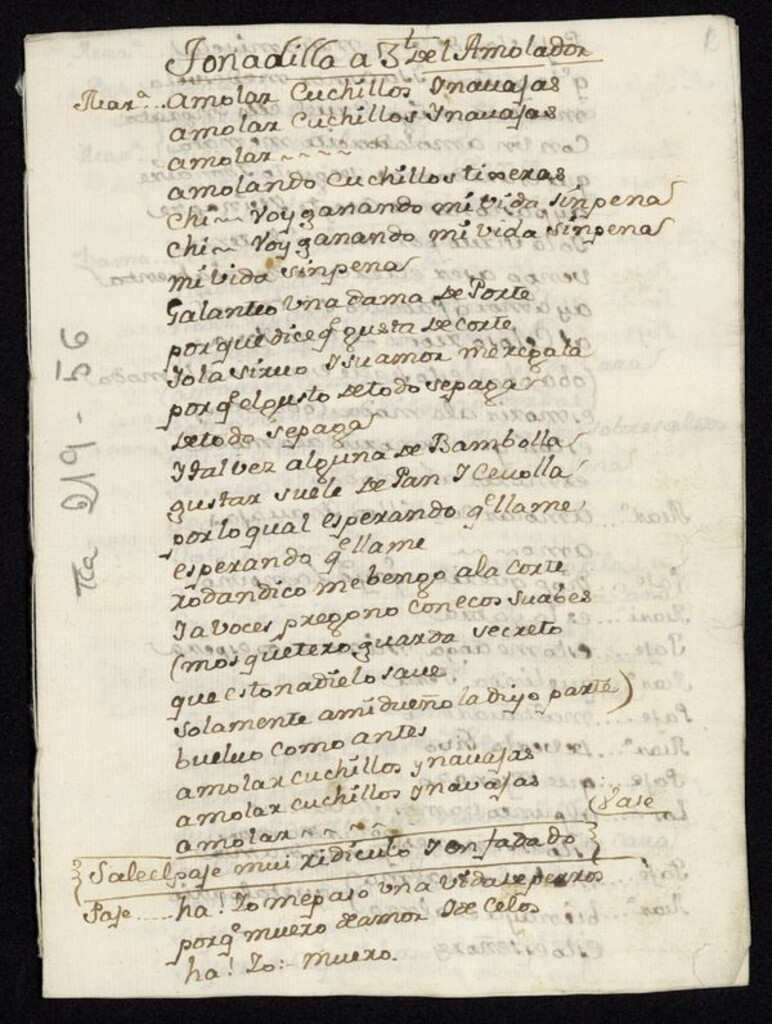 Tonadilla a 3. del Amolador
Mar.ª.. amolar Cuchillos Ynauajas
amolar Cuchillos Ynauajas
amolar ~ ~ ~ ~
amolando Cuchillos tixeras
chi~~ Voy ganando mi vida sinpena
chi~~ Voy ganando mi vida sinpena
mi vida sinpena
Galanteo Vna dama de Porte
por que dice q.e gusta de corte
Yo la siruo Y su amor me regala
por q.e el gusto de todo se paga
de todo sepaga
Y tal vez alguna de Bambolla
gustar suele de Pan Y Ceuolla
por lo qual esperando q.e llame
esperando q.e llame
rodandico me bengo a la Corte
Y a voces pregono con ecos suabes
(mosquetero guarda secreto
que esto nadie lo saue
solamente a mi dueño la digo parte)
bueluo como antes
amolar cuchillos y nauajas
amolar cuchillos y navajas
amolar ~ ~ ~ ~ Paje
Sale el paje mui ridiculo Y enfadado
Paje..... ha! Yo me paso vna Vida de perros
porq.e muero de amor Y de Celos
ha! Yo:- muero.
Tta 219-56